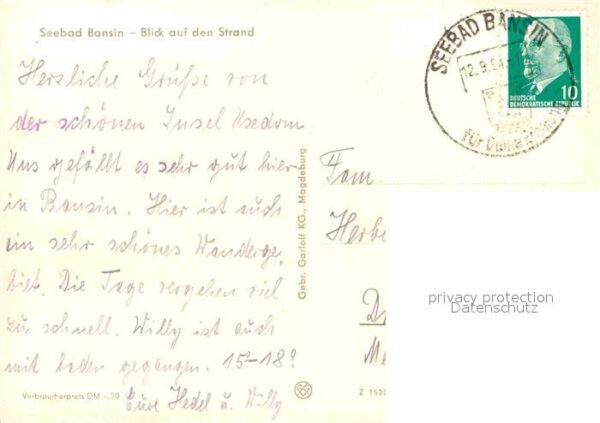 Seebad Bansin – Blick auf den Strand
Herzliche Grüße von
der schönen Insel Usedom.
Uns gefällt es sehr gut hier
in Bansin. Hier ist auch
ein sehr schönes Wanderge-
biet. Die Tage vergehen viel
zur schnell. Willy ist auch
mit baden gegangen. 15°-18°
Eure Hedel u. Willy
Verbraucherpreis DM -,20
Gebr. Garloff KG., Magdeburg
SEEBAD BANSIN
12.9.
für Deine
10
DEUTSCHE
DEMOKRATISCHE REPUBLIK
Fam.
Herbe
D
Me
Z 1520
privacy protection
Datenschutz